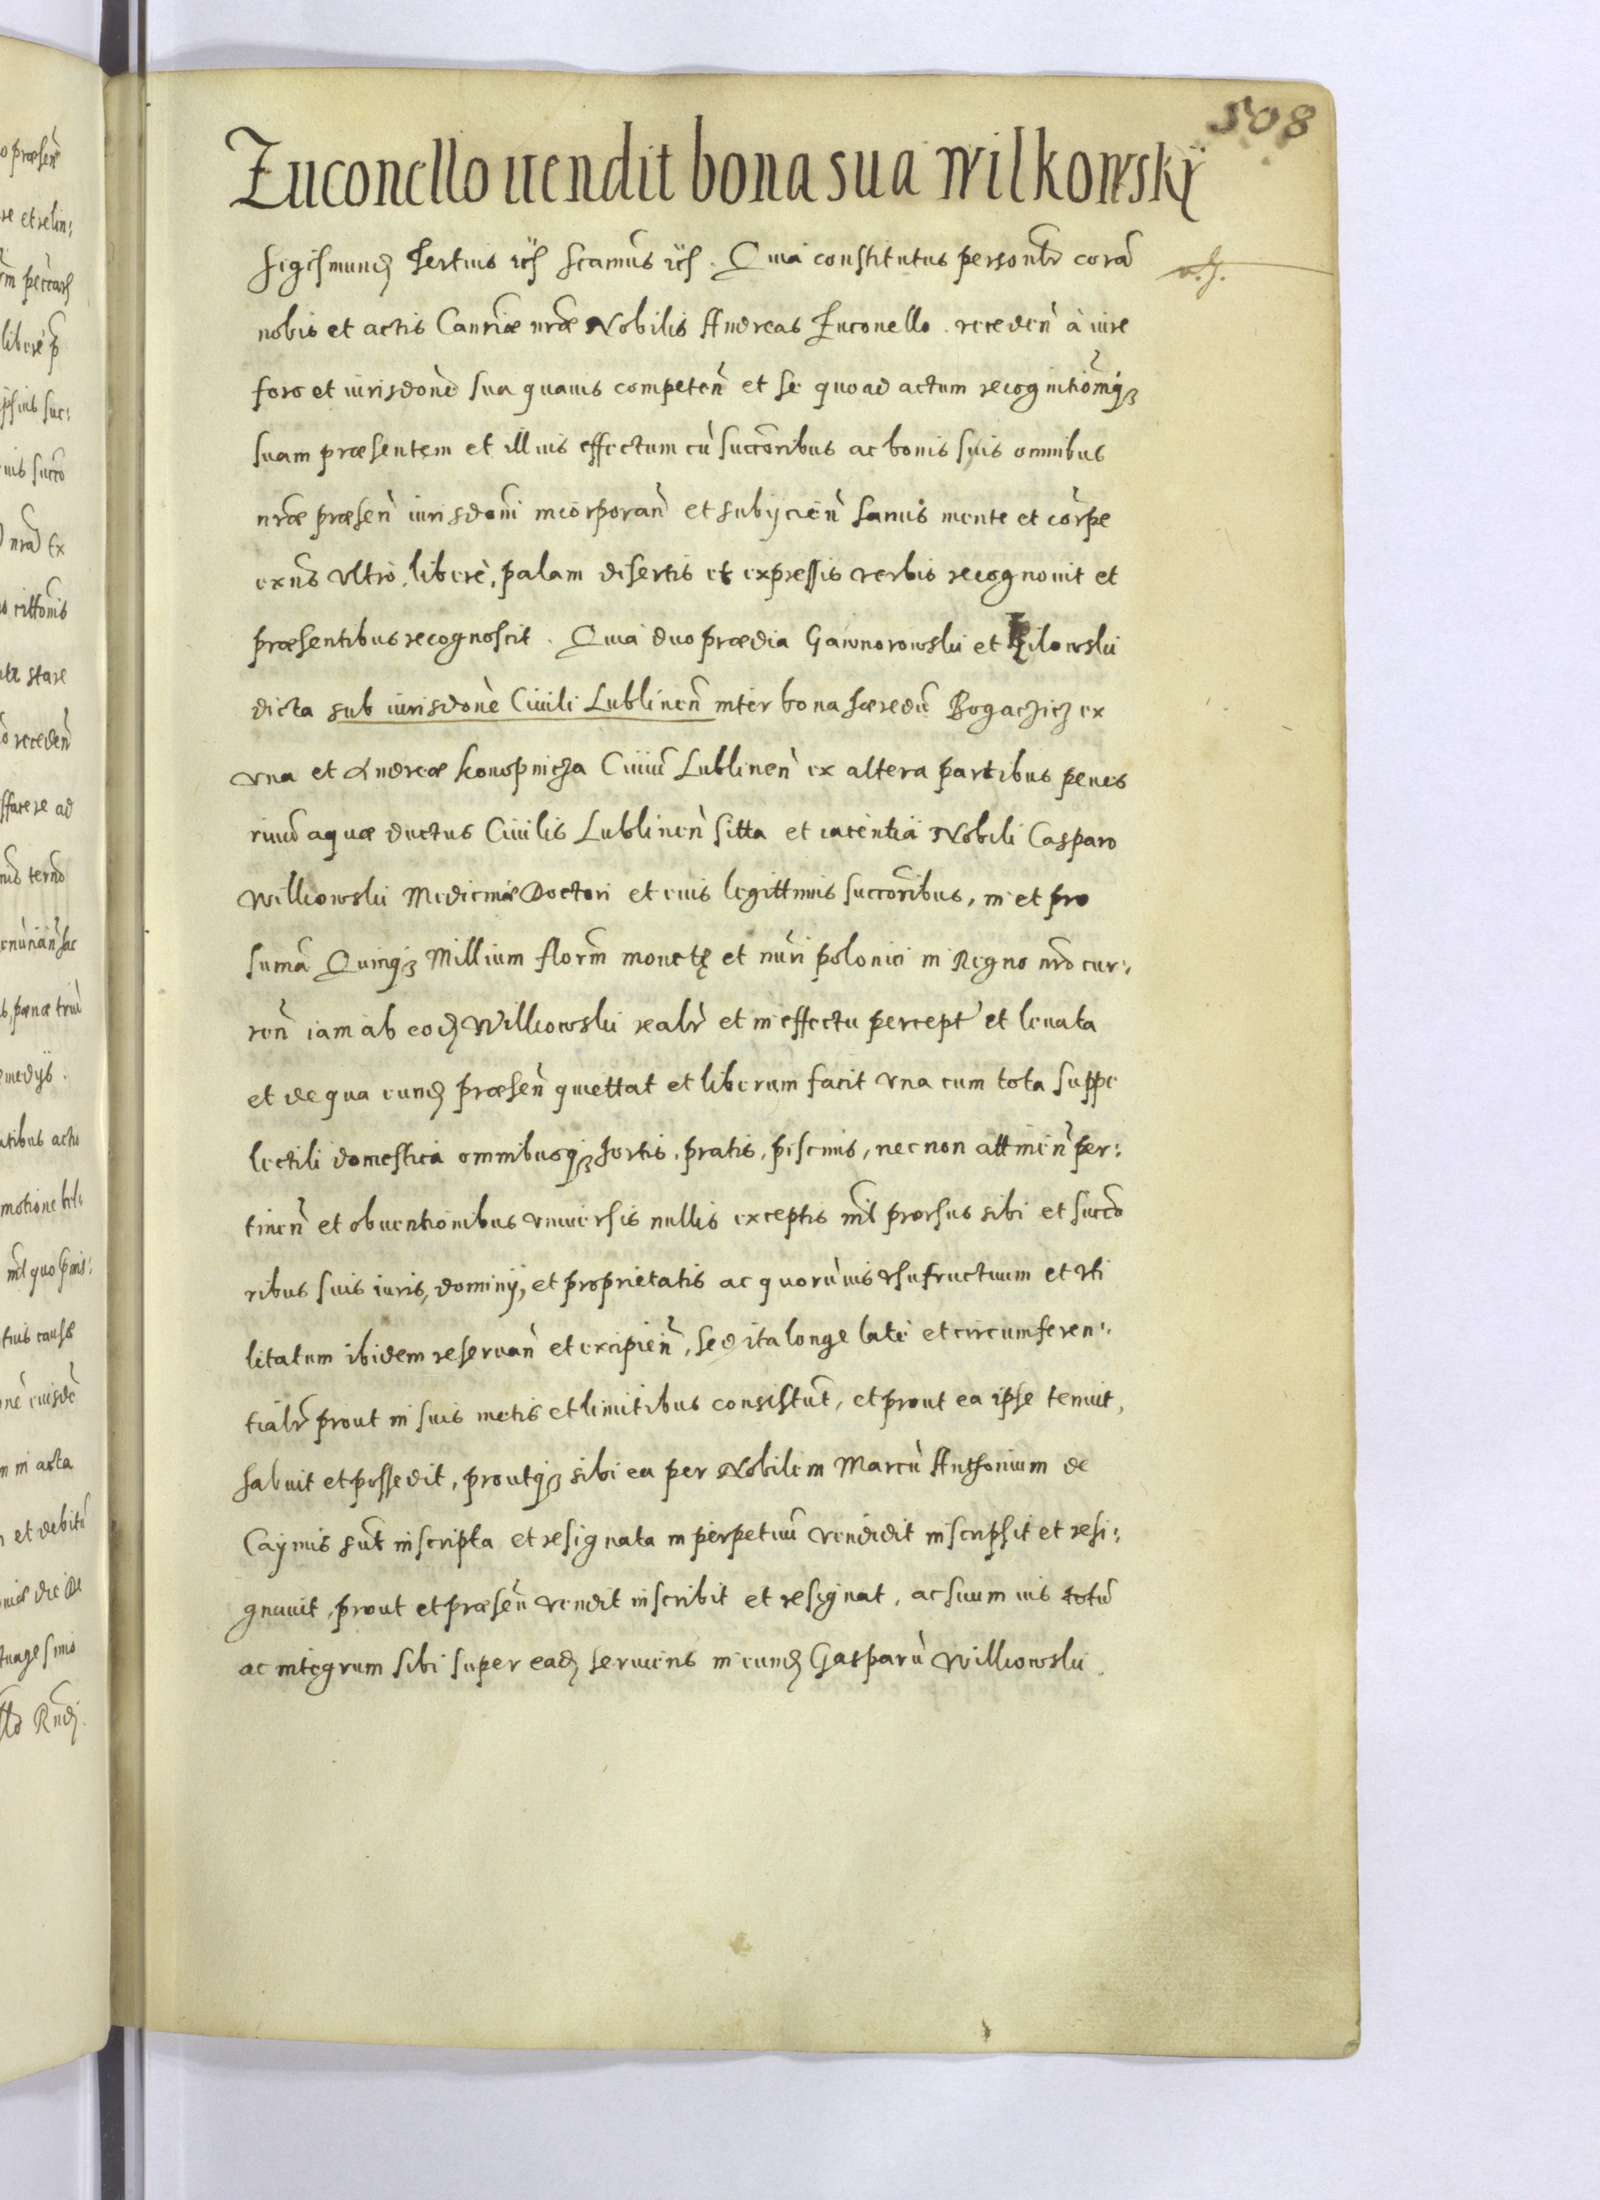 508
Zuconello uendit bona sua Wilkowskÿ
Sigismund9 Tertius rēs scamūs rēs. Quia constitutus personlr corā
nobis et actis Canriæ nræ Nobilis Andreas Zuconello receden̄ à iure
foro et iurisdōne sua quauis competen̄ et se quoad actum recognitiōmq3
suam præsentem et illius effectum cū succoribus ac bonis suis omnibus
nræ præsen̄ iurisdōni incorporan̄ et subijcien̄ sanus mente et corpe
exns vltrò, liberè, palam disertis et expressis verbis recognouit et
præsentibus recognoscit. Quia duo prædia Gawnorowski et
dicta sub iurisdōne Ciuili Lublinen̄ inter bona hæredū Bogaczicz ex
vna et Andreæ Konopnicza Ciuiū Lublinen̄ ex altera partibus penes
riuū aquæ ductus Ciuilis Lublinen̄ sitta et iacentia Nobili Casparo
Wilkowski Medicinæ Doctori et eius legittimis succoribus, in et pro
sumā Quinq3 Millium florm̄ monetę et nūri polonici in Regno nrō cur:
ren̄ iam ab eod9 Wilkowski realr et in effectu percept' et leuata
et de qua eund9 præsen̄ quiettat et liberum facit vna cum tota suppe
lectili domestica omnibusq3 hortis, pratis, piscinis, nec non attinen̄ per:
tinen̄ et obuentionibus vniuersis nullis exceptis nil prorsus sibi et succo
ribus suis iuris, dominij, et proprietatis ac quorūuis vsufructuum et vti
litatum ibidem reseruan̄ et excipien̄, sed ita longe latè et circumferen:
tialr prout in suis metis et limitibus consistūt, et prout ea ipse tenuit,
habuit et possedit, proutq3 sibi ea per Nobilem Marcū Anthonium de
Caymis sūt inscripta et resignata in perpetuū vendidit inscripsit et resi:
gnauit, prout et præsen̄ vendit inscribit et resignat, ac suum ius totū
ac integrum sibi super ead9 seruiens in eund9 Gasparū Wilkowski